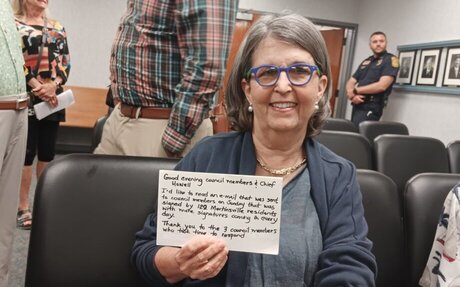 Good evening council members & Chief
Howell
I'd like to read an e-mail that was sent
to council members on Sunday that was
signed by 129 Martinsville residents
with more signatures coming in every
day.
Thank you to the 3 council members
who took time to respond.